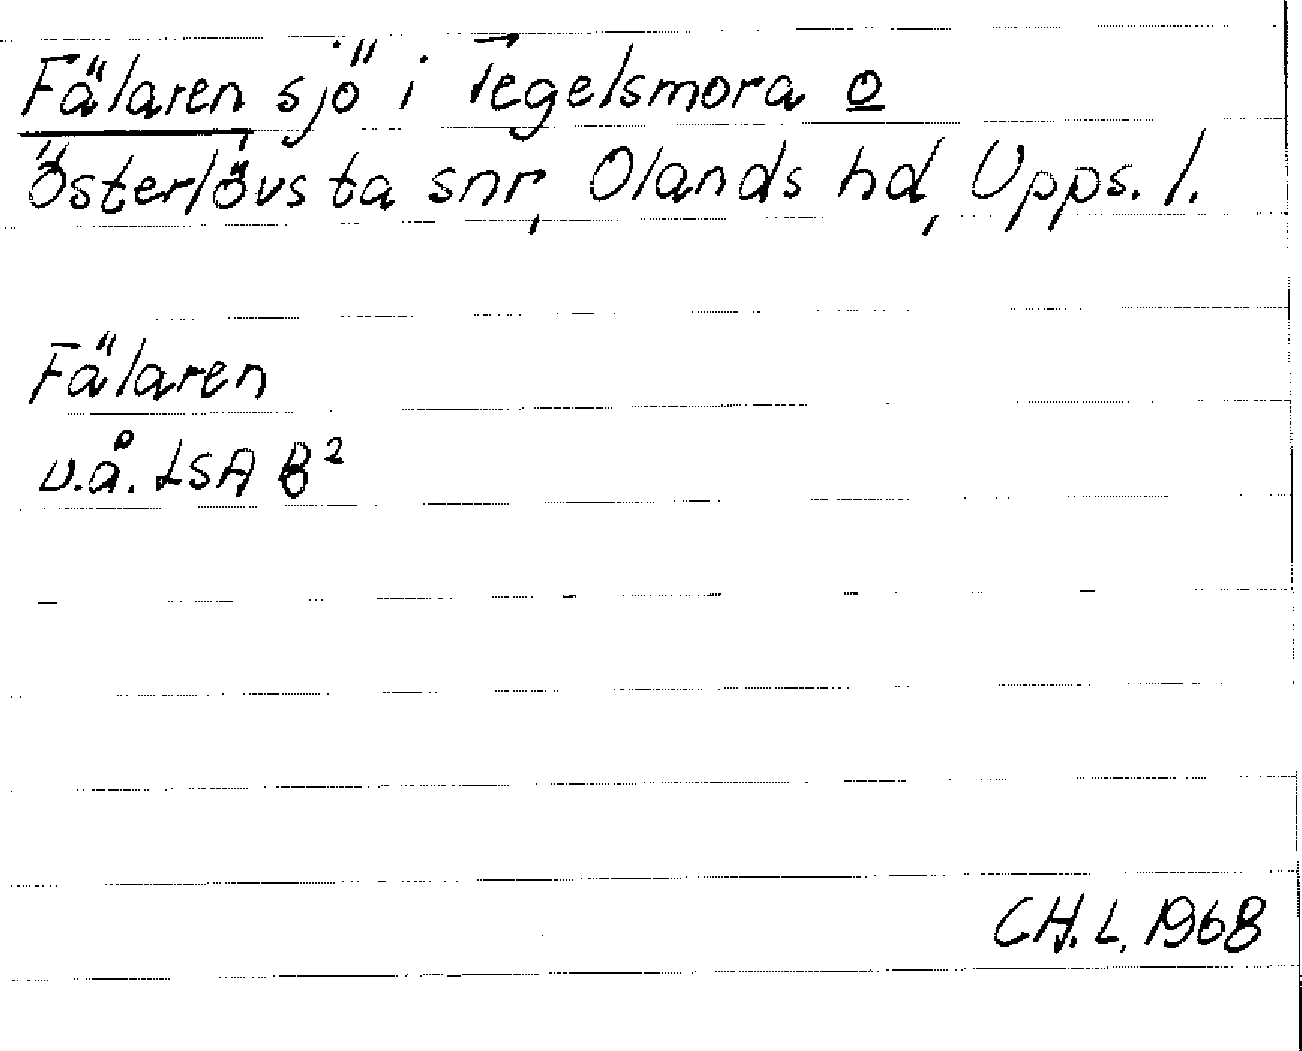 Fälaren sjö i Tegelsmora o
Österlövsta snr, Olands hd, Upps. l.
Fälaren
u.å. LSA B²
CH. L. 1968